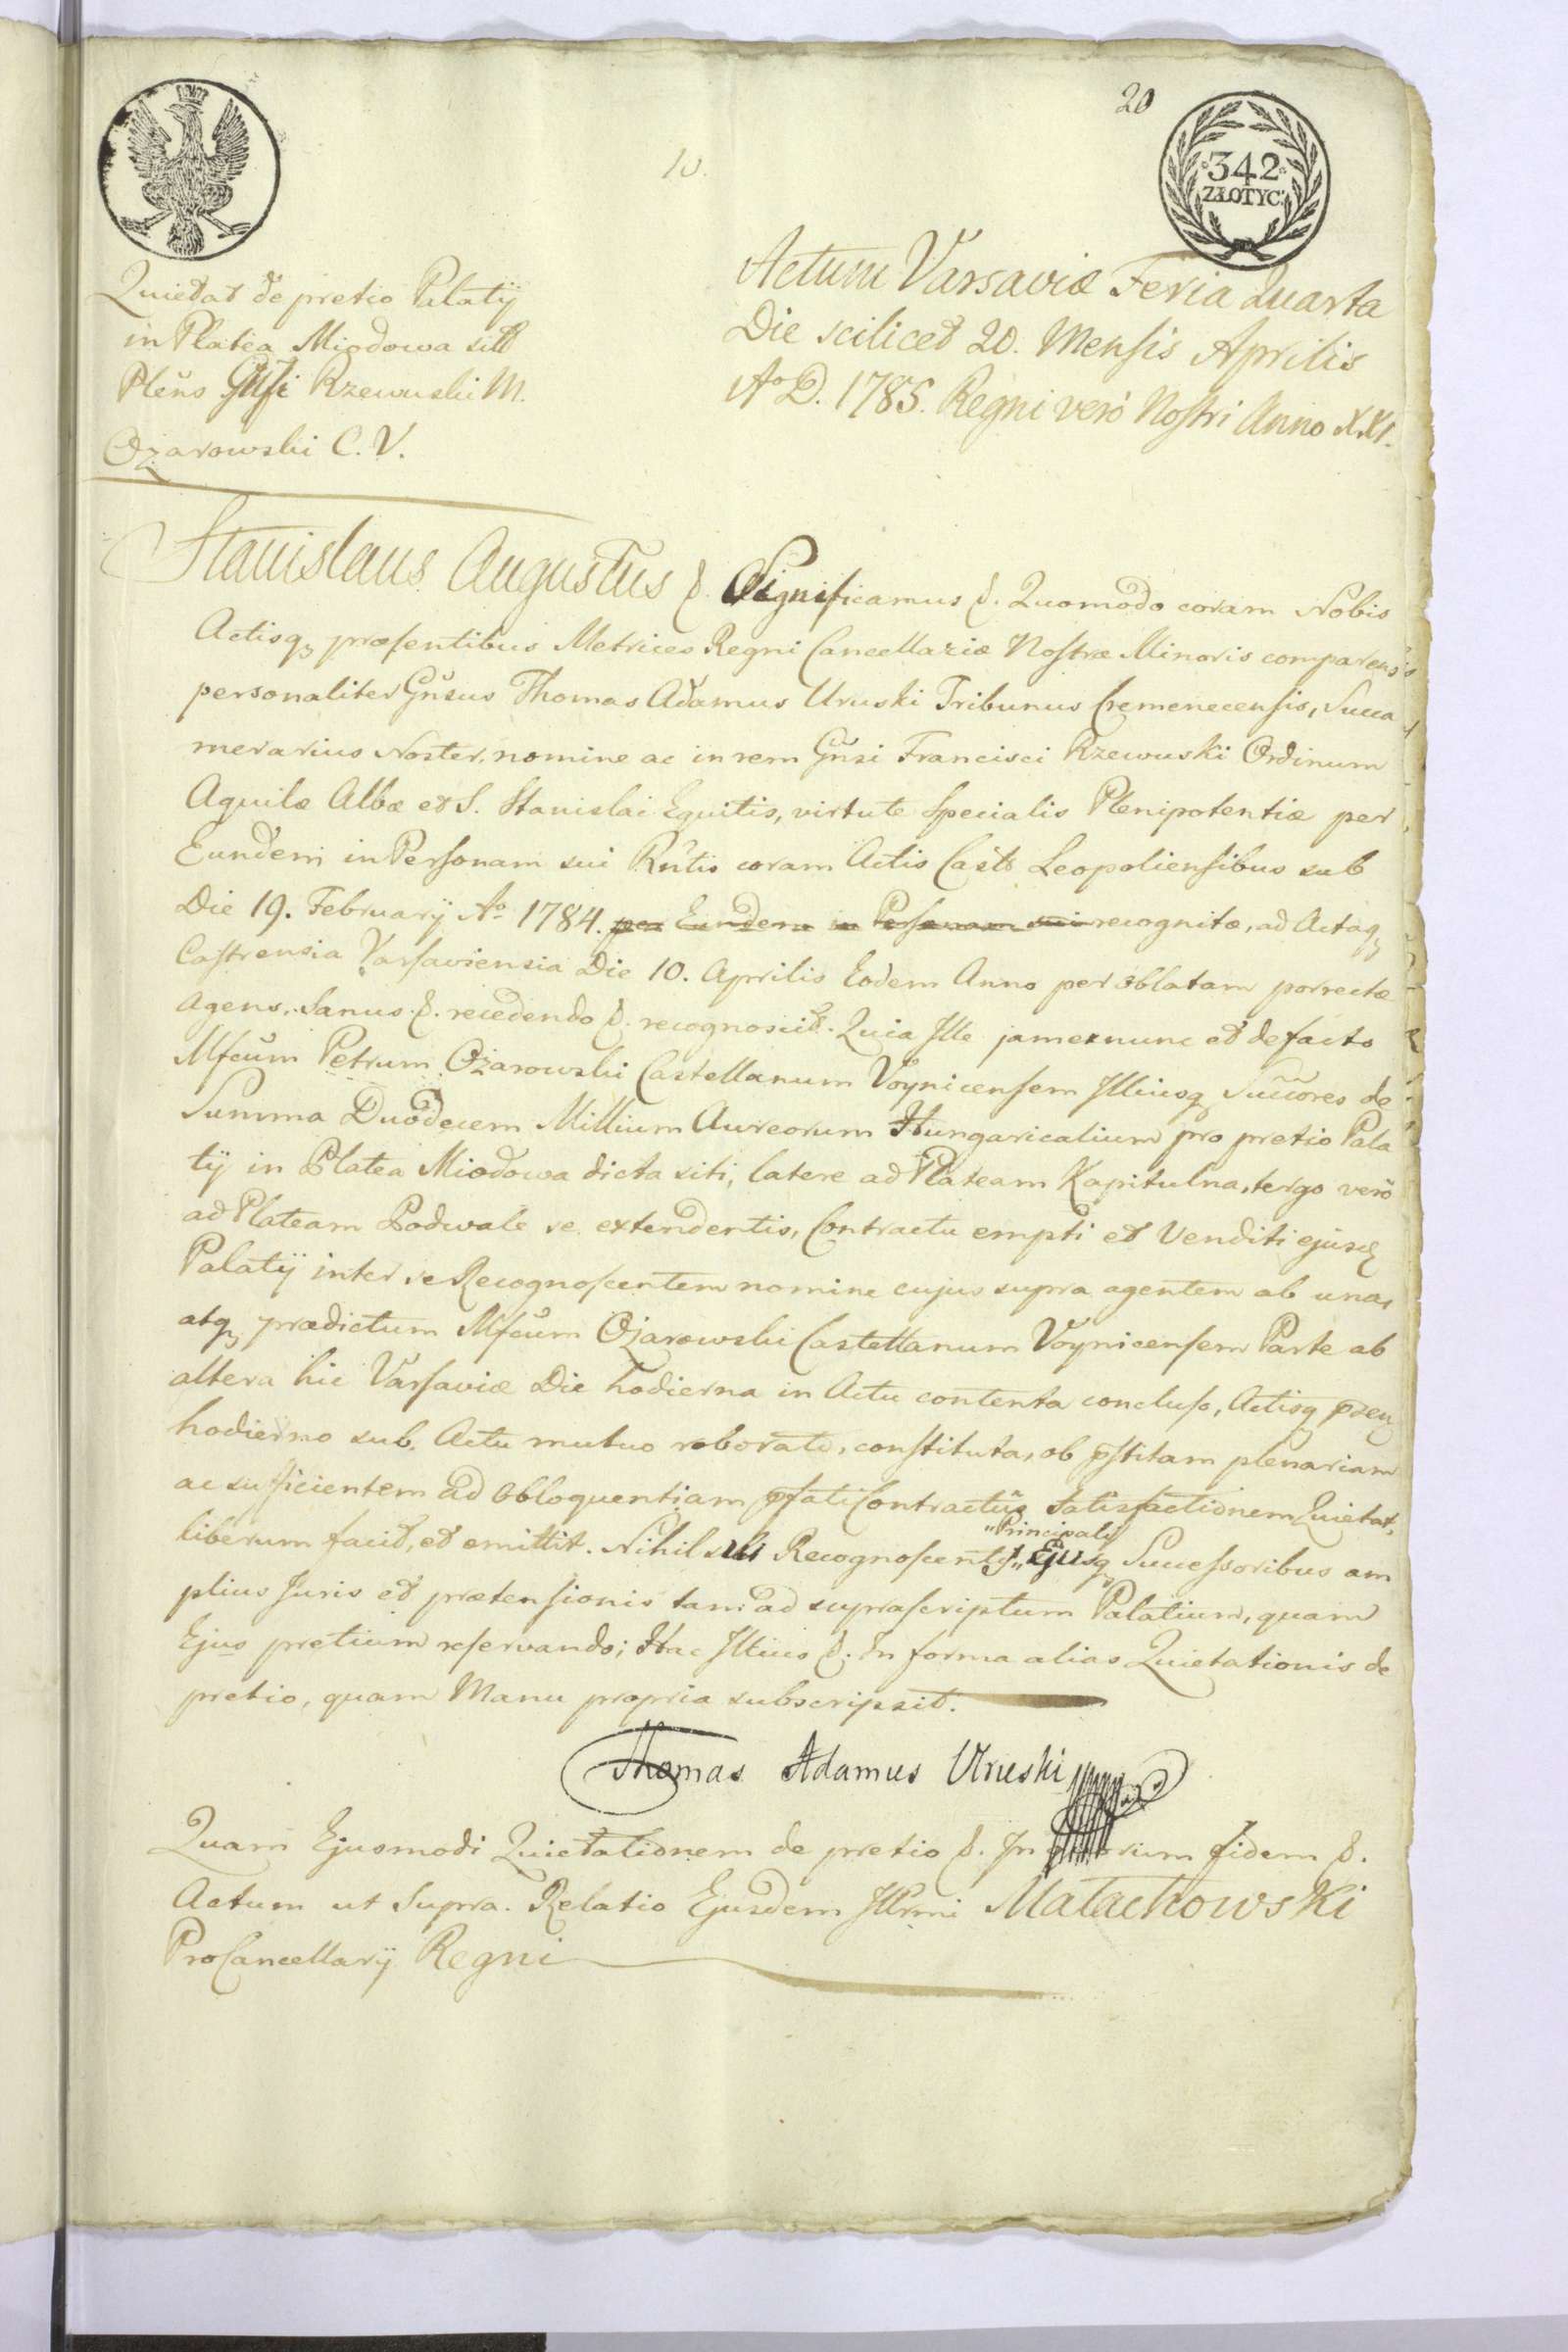 20
342
ZŁOTYC
10.
Quietat de pretio Palatÿ
in Platea Miodowa siti
Plens Gnsi Rzewuski M.
Ożarowski C. V.
Actum Varsaviæ Feria Quarta
Die scilicet 20. Mensis Aprilis
Ao D. 1785. Regni verò Nostri Anno XXI.
Stanislaus Augustus &. Significamus &. Quomodo coram Nobis
Actisq præsentibus Metrices Regni Cancellariæ Nostræ Minoris comparens
personaliter Gnsus Thomas Adamus Uruski Tribunus Cremenecensis, Succa
merarius Noster, nomine ac in rem Gnsi Francisci Rzewuski Ordinum
Aquilæ Albæ et S. Stanislai Equitis, virtute Specialis Plenipotentiæ per
Eundem in Personam sui Rntis coram Actis Casts Leopoliensibus sub
Die 19. Februarÿ Ao 1784. per Eundem in Personam sui recognitæ, ad Actaq
Castrensia Varsaviensia Die 10. Aprilis Eodem Anno per oblatam porrectæ
agens, Sanus &. recedendo &. recognoscit. Quia Ille jam ex nunc et de facto
Mfcum Petrum Ożarowski Castellanum Voynicensem Illiusq Succores de
Summa Duodecem Millium Aureorum Hungaricalium pro pretio Pala
tÿ in Platea Miodowa dicta siti, latere ad Plateam Kapitulna, tergo verò
ad Plateam Podwale se extendentis, Contractu empti et Venditi ejusd
Palatÿ inter se Recognoscentem nomine cujus supra agentem ab una,
atq prædictum Mfcum Ożarowski Castellanum Voynicensem Parte ab
altera hic Varsaviæ Die hodierna in Actu contenta concluso, Actisq psen
hodierno sub Actu mutuo roborato, constituta, ob pstitam plenariam
ac sufficientem ad obloquentiam pfati Contractûs Satisfactionem Quietat,
liberum facit, et emittit. Nihil sibi Recognoscenti, "Principali" Ejusq Successoribus am
plius Juris et prætensionis tam ad suprascriptum Palatium, quam
Ejus pretium reservando; Hac Illius &. In forma alias Quietationis de
pretio, quam Manu propria subscripsit.
Thomas Adamus Uruski
Quam Ejusmodi Quietationem de pretio &. In fidem &.
Actum ut Supra. Relatio Ejusdem Illrmi Małachowski
ProCancellarÿ Regni